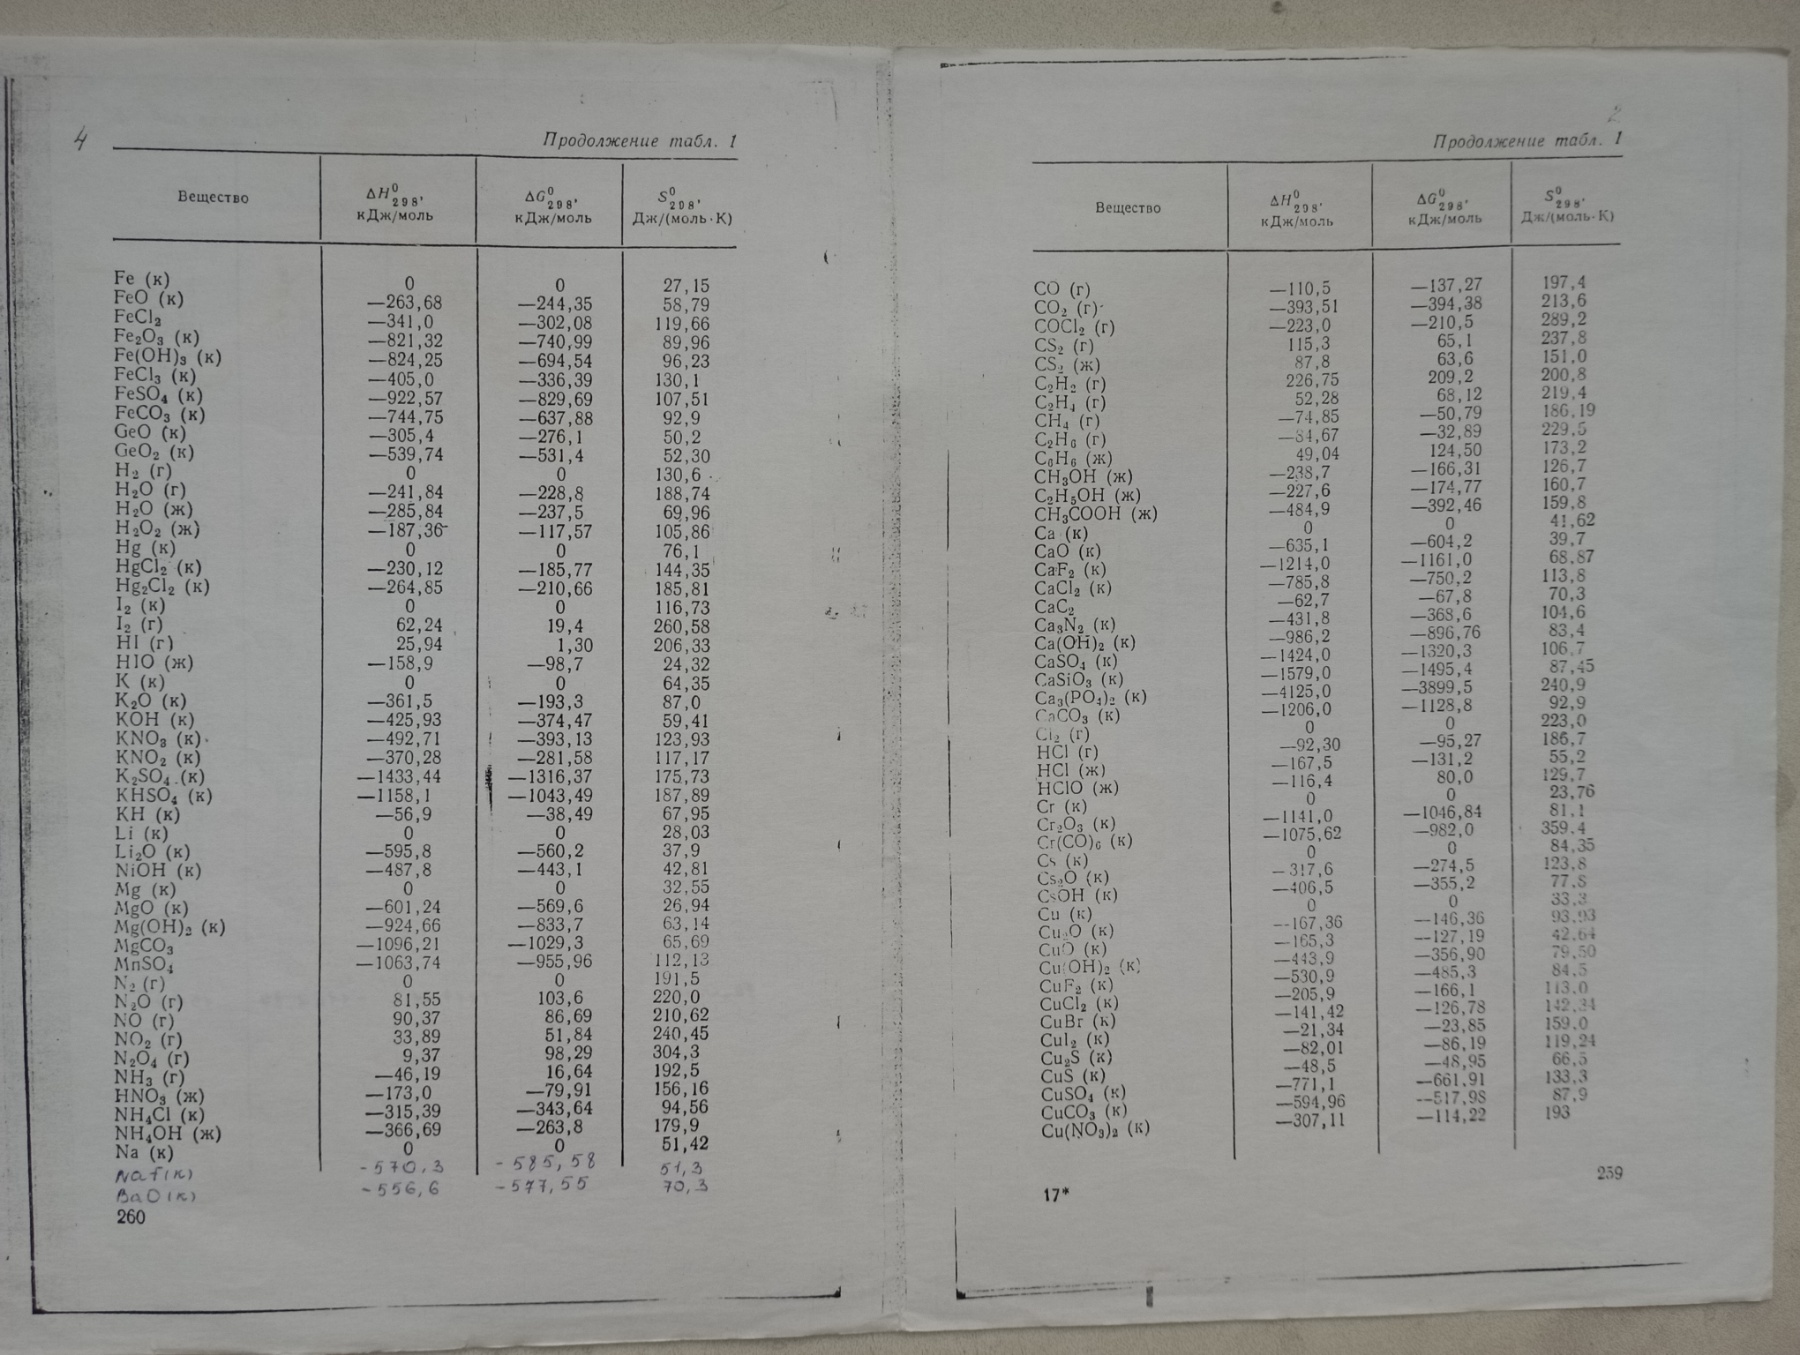 4
Продолжение табл. 1
Вещество ΔH⁰₂₉₈, кДж/моль ΔG⁰₂₉₈, кДж/моль S⁰₂₉₈, Дж/(моль·К)
Fe (к) 0 0 27,15
FeO (к) —263,68 —244,35 58,79
FeCl₂ —341,0 —302,08 119,66
Fe₂O₃ (к) —821,32 —740,99 89,96
Fe(OH)₃ (к) —824,25 —694,54 96,23
FeCl₃ (к) —405,0 —336,39 130,1
FeSO₄ (к) —922,57 —829,69 107,51
FeCO₃ (к) —744,75 —637,88 92,9
GeO (к) —305,4 —276,1 50,2
GeO₂ (к) —539,74 —531,4 52,30
H₂ (г) 0 0 130,6
H₂O (г) —241,84 —228,8 188,74
H₂O (ж) —285,84 —237,5 69,96
H₂O₂ (ж) —187,36 —117,57 105,86
Hg (к) 0 0 76,1
HgCl₂ (к) —230,12 —185,77 144,35
Hg₂Cl₂ (к) —264,85 —210,66 185,81
I₂ (к) 0 0 116,73
I₂ (г) 62,24 19,4 260,58
HI (г) 25,94 1,30 206,33
HIO (ж) —158,9 —98,7 24,32
K (к) 0 0 64,35
K₂O (к) —361,5 —193,3 87,0
KOH (к) —425,93 —374,47 59,41
KNO₃ (к) —492,71 —393,13 123,93
KNO₂ (к) —370,28 —281,58 117,17
K₂SO₄ (к) —1433,44 —1316,37 175,73
KHSO₄ (к) —1158,1 —1043,49 187,89
KH (к) —56,9 —38,49 67,95
Li (к) 0 0 28,03
Li₂O (к) —595,8 —560,2 37,9
NiOH (к) —487,8 —443,1 42,81
Mg (к) 0 0 32,55
MgO (к) —601,24 —569,6 26,94
Mg(OH)₂ (к) —924,66 —833,7 63,14
MgCO₃ —1096,21 —1029,3 65,69
MnSO₄ —1063,74 —955,96 112,13
N₂ (г) 0 0 191,5
N₂O (г) 81,55 103,6 220,0
NO (г) 90,37 86,69 210,62
NO₂ (г) 33,89 51,84 240,45
N₂O₄ (г) 9,37 98,29 304,3
NH₃ (г) —46,19 16,64 192,5
HNO₃ (ж) —173,0 —79,91 156,16
NH₄Cl (к) —315,39 —343,64 94,56
NH₄OH (ж) —366,69 —263,8 179,9
Na (к) 0 0 51,42
NaF(к) -570,3 -585,58 51,3
BaO(к) -556,6 -577,55 70,3
260
2
Продолжение табл. 1
Вещество ΔH⁰₂₉₈, кДж/моль ΔG⁰₂₉₈, кДж/моль S⁰₂₉₈, Дж/(моль·К)
CO (г) —110,5 —137,27 197,4
CO₂ (г) —393,51 —394,38 213,6
COCl₂ (г) —223,0 —210,5 289,2
CS₂ (г) 115,3 65,1 237,8
CS₂ (ж) 87,8 63,6 151,0
C₂H₂ (г) 226,75 209,2 200,8
C₂H₄ (г) 52,28 68,12 219,4
CH₄ (г) —74,85 —50,79 186,19
C₂H₆ (г) —84,67 —32,89 229,5
C₆H₆ (ж) 49,04 124,50 173,2
CH₃OH (ж) —238,7 —166,31 126,7
C₂H₅OH (ж) —227,6 —174,77 160,7
CH₃COOH (ж) —484,9 —392,46 159,8
Ca (к) 0 0 41,62
CaO (к) —635,1 —604,2 39,7
CaF₂ (к) —1214,0 —1161,0 68,87
CaCl₂ (к) —785,8 —750,2 113,8
CaC₂ —62,7 —67,8 70,3
Ca₃N₂ (к) —431,8 —368,6 104,6
Ca(OH)₂ (к) —986,2 —896,76 83,4
CaSO₄ (к) —1424,0 —1320,3 106,7
CaSiO₃ (к) —1579,0 —1495,4 87,45
Ca₃(PO₄)₂ (к) —4125,0 —3899,5 240,9
CaCO₃ (к) —1206,0 —1128,8 92,9
Cl₂ (г) 0 0 223,0
HCl (г) —92,30 —95,27 186,7
HCl (ж) —167,5 —131,2 55,2
HClO (ж) —116,4 80,0 129,7
Cr (к) 0 0 23,76
Cr₂O₃ (к) —1141,0 —1046,84 81,1
Cr(CO)₆ (к) —1075,62 —982,0 359,4
Cs (к) 0 0 84,35
Cs₂O (к) —317,6 —274,5 123,8
CsOH (к) —406,5 —355,2 77,8
Cu (к) 0 0 33,3
Cu₂O (к) —167,36 —146,36 93,93
CuO (к) —165,3 —127,19 42,64
Cu(OH)₂ (к) —443,9 —356,90 79,50
CuF₂ (к) —530,9 —485,3 84,5
CuCl₂ (к) —205,9 —166,1 113,0
CuBr (к) —141,42 —126,78 142,34
CuI₂ (к) —21,34 —23,85 159,0
Cu₂S (к) —82,01 —86,19 119,24
CuS (к) —48,5 —48,95 66,5
CuSO₄ (к) —771,1 —661,91 133,3
CuCO₃ (к) —594,96 —517,98 87,9
Cu(NO₃)₂ (к) —307,11 —114,22 193
17*
259